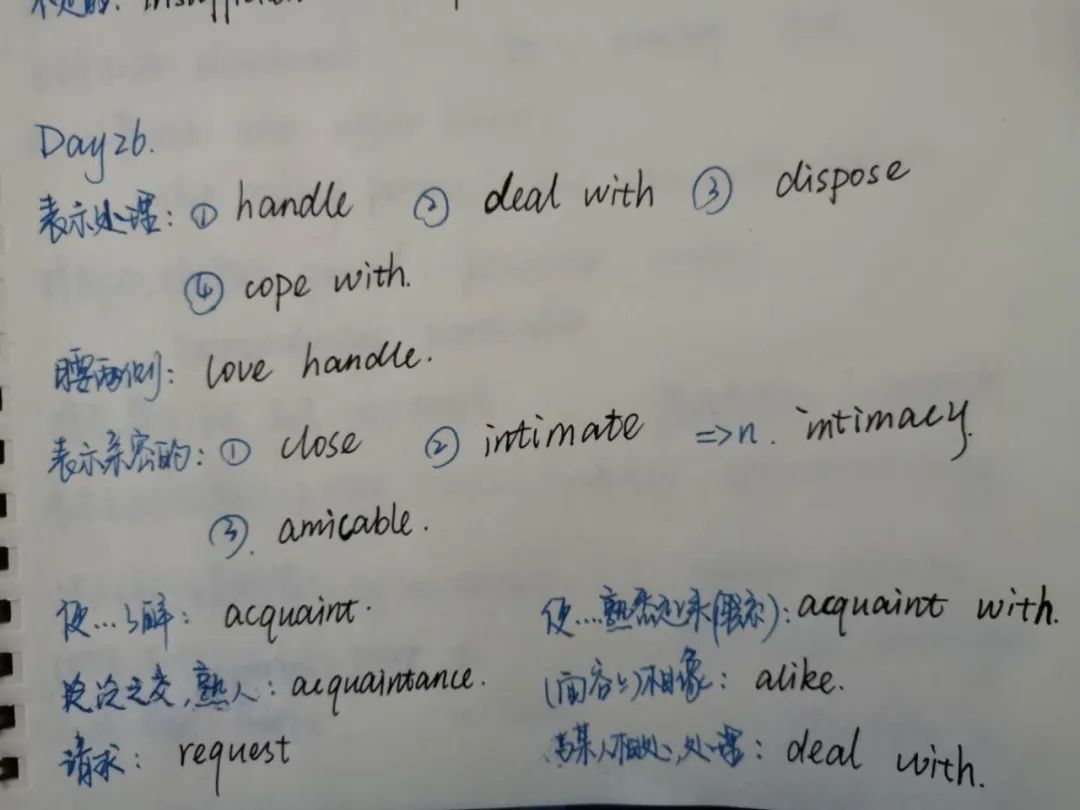 不足的: insufficien
Day 26.
表示处理: ① handle ② deal with ③ dispose
④ cope with.
腰两侧: love handle.
表示亲密的: ① close ② intimate => n. intimacy.
③. amicable.
使...了解: acquaint. 使...熟悉起来(状态): acquaint with.
泛泛之交,熟人: acquaintance. (面容上)相像: alike.
请求: request 与某人相处,处理: deal with.